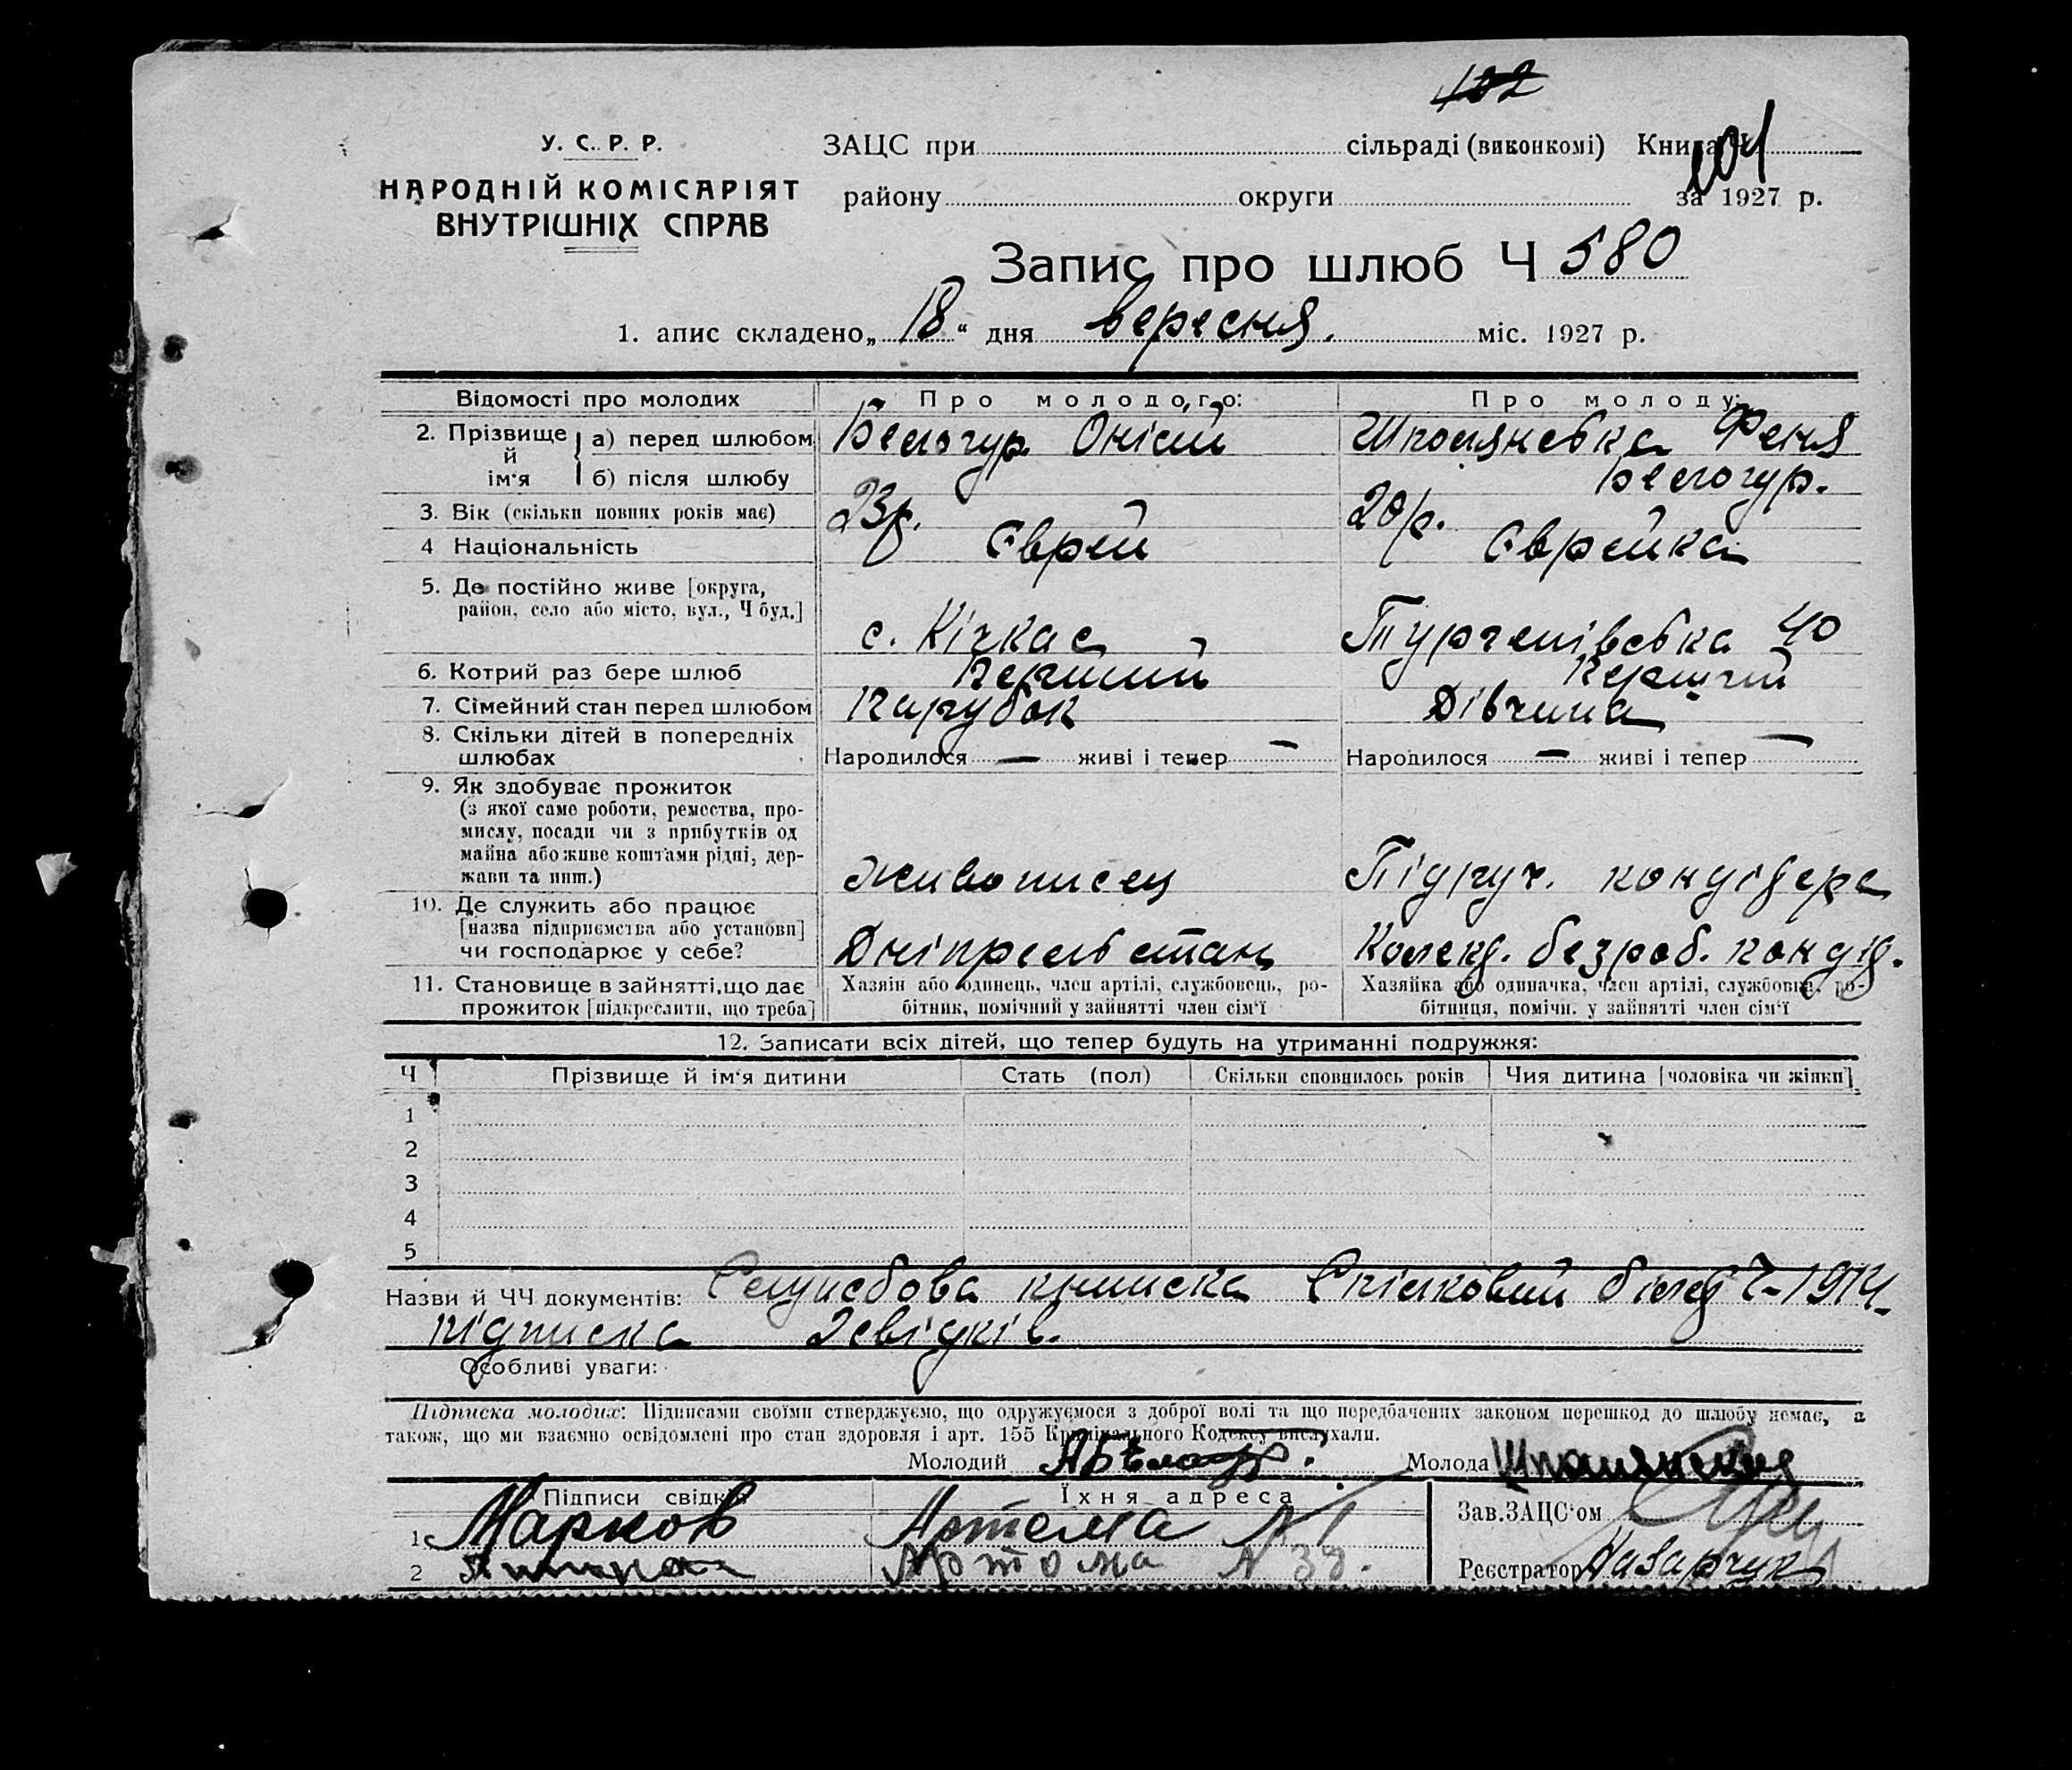 102
У. С. Р. Р.
НАРОДНІЙ КОМІСАРІЯТ
ВНУТРІШНІХ СПРАВ
ЗАЦС при сільраді (виконкомі) Книга Ч 101
району округи за 1927 р.
Запис про шлюб Ч 580
1. апис складено „18“ дня вересня. міс. 1927 р.
Відомості про молодих Про молодого: Про молоду:
2. Прізвище й ім'я а) перед шлюбом Белогур. Онісій Шполянська Феня
б) після шлюбу Белогур.
3. Вік (скільки повних років має) 23р. 20р.
4 Національність Єврей Єврейка
5. Де постійно живе [округа,
район, село або місто, вул., Ч буд.] с. Кічкас Тургенівська 40
6. Котрий раз бере шлюб Перший Перший
7. Сімейний стан перед шлюбом Парубок Дівчина
8. Скільки дітей в попередніх
шлюбах Народилося — живі і тепер — Народилося — живі і тепер —
9. Як здобуває прожиток
(з якої саме роботи, ремества, про-
мислу, посади чи з прибутків од
майна або живе коштами рідні, дер-
жави та инш.) Живописец Підруч. кондідера
10. Де служить або працює
[назва підприємства або установи]
чи господарює у себе? Дніпрельстан Колекд. безроб. кондід.
11. Становище в зайнятті, що дає
прожиток [підкреслити, що треба]
Хазяїн або одинець, член артілі, службовець, ро-
бітник, помічний у зайнятті член сім'ї
Хазяйка або одиначка, член артілі, службовка, ро-
бітниця, помічн. у зайнятті член сім'ї
12. Записати всіх дітей, що тепер будуть на утриманні подружжя:
Ч Прізвище й ім'я дитини Стать (пол) Скільки сповнилось років Чия дитина [чоловіка чи жінки]
1
2
3
4
5
Назви й ЧЧ документів: Служсбова книжка Спілковий білет Ч-1914.
підписка Зсвідків.
Особливі уваги:
Підписка молодих: Підписами своїми стверджуємо, що одружуємося з доброї волі та що передбачених законом перешкод до шлюбу немає, а
також, що ми взаємно освідомлені про стан здоровля і арт. 155 Кримінального Кодексу вислухали.
Молодий Молода Шполянская
Підписи свідків Їхня адреса
1 Марков Артема N 1
2 Артома N 38.
Зав. ЗАЦС'ом
Реєстратор Назарчук